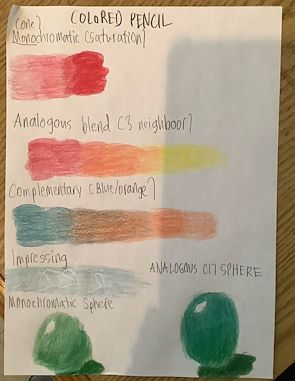 COLORED PENCIL
(one)
Monochromatic (saturation)
Analogous blend (3 neighboor)
Complementary (Blue/orange)
Impressing
ANALOGOUS (17 SPHERE
Monochromatic Sphere